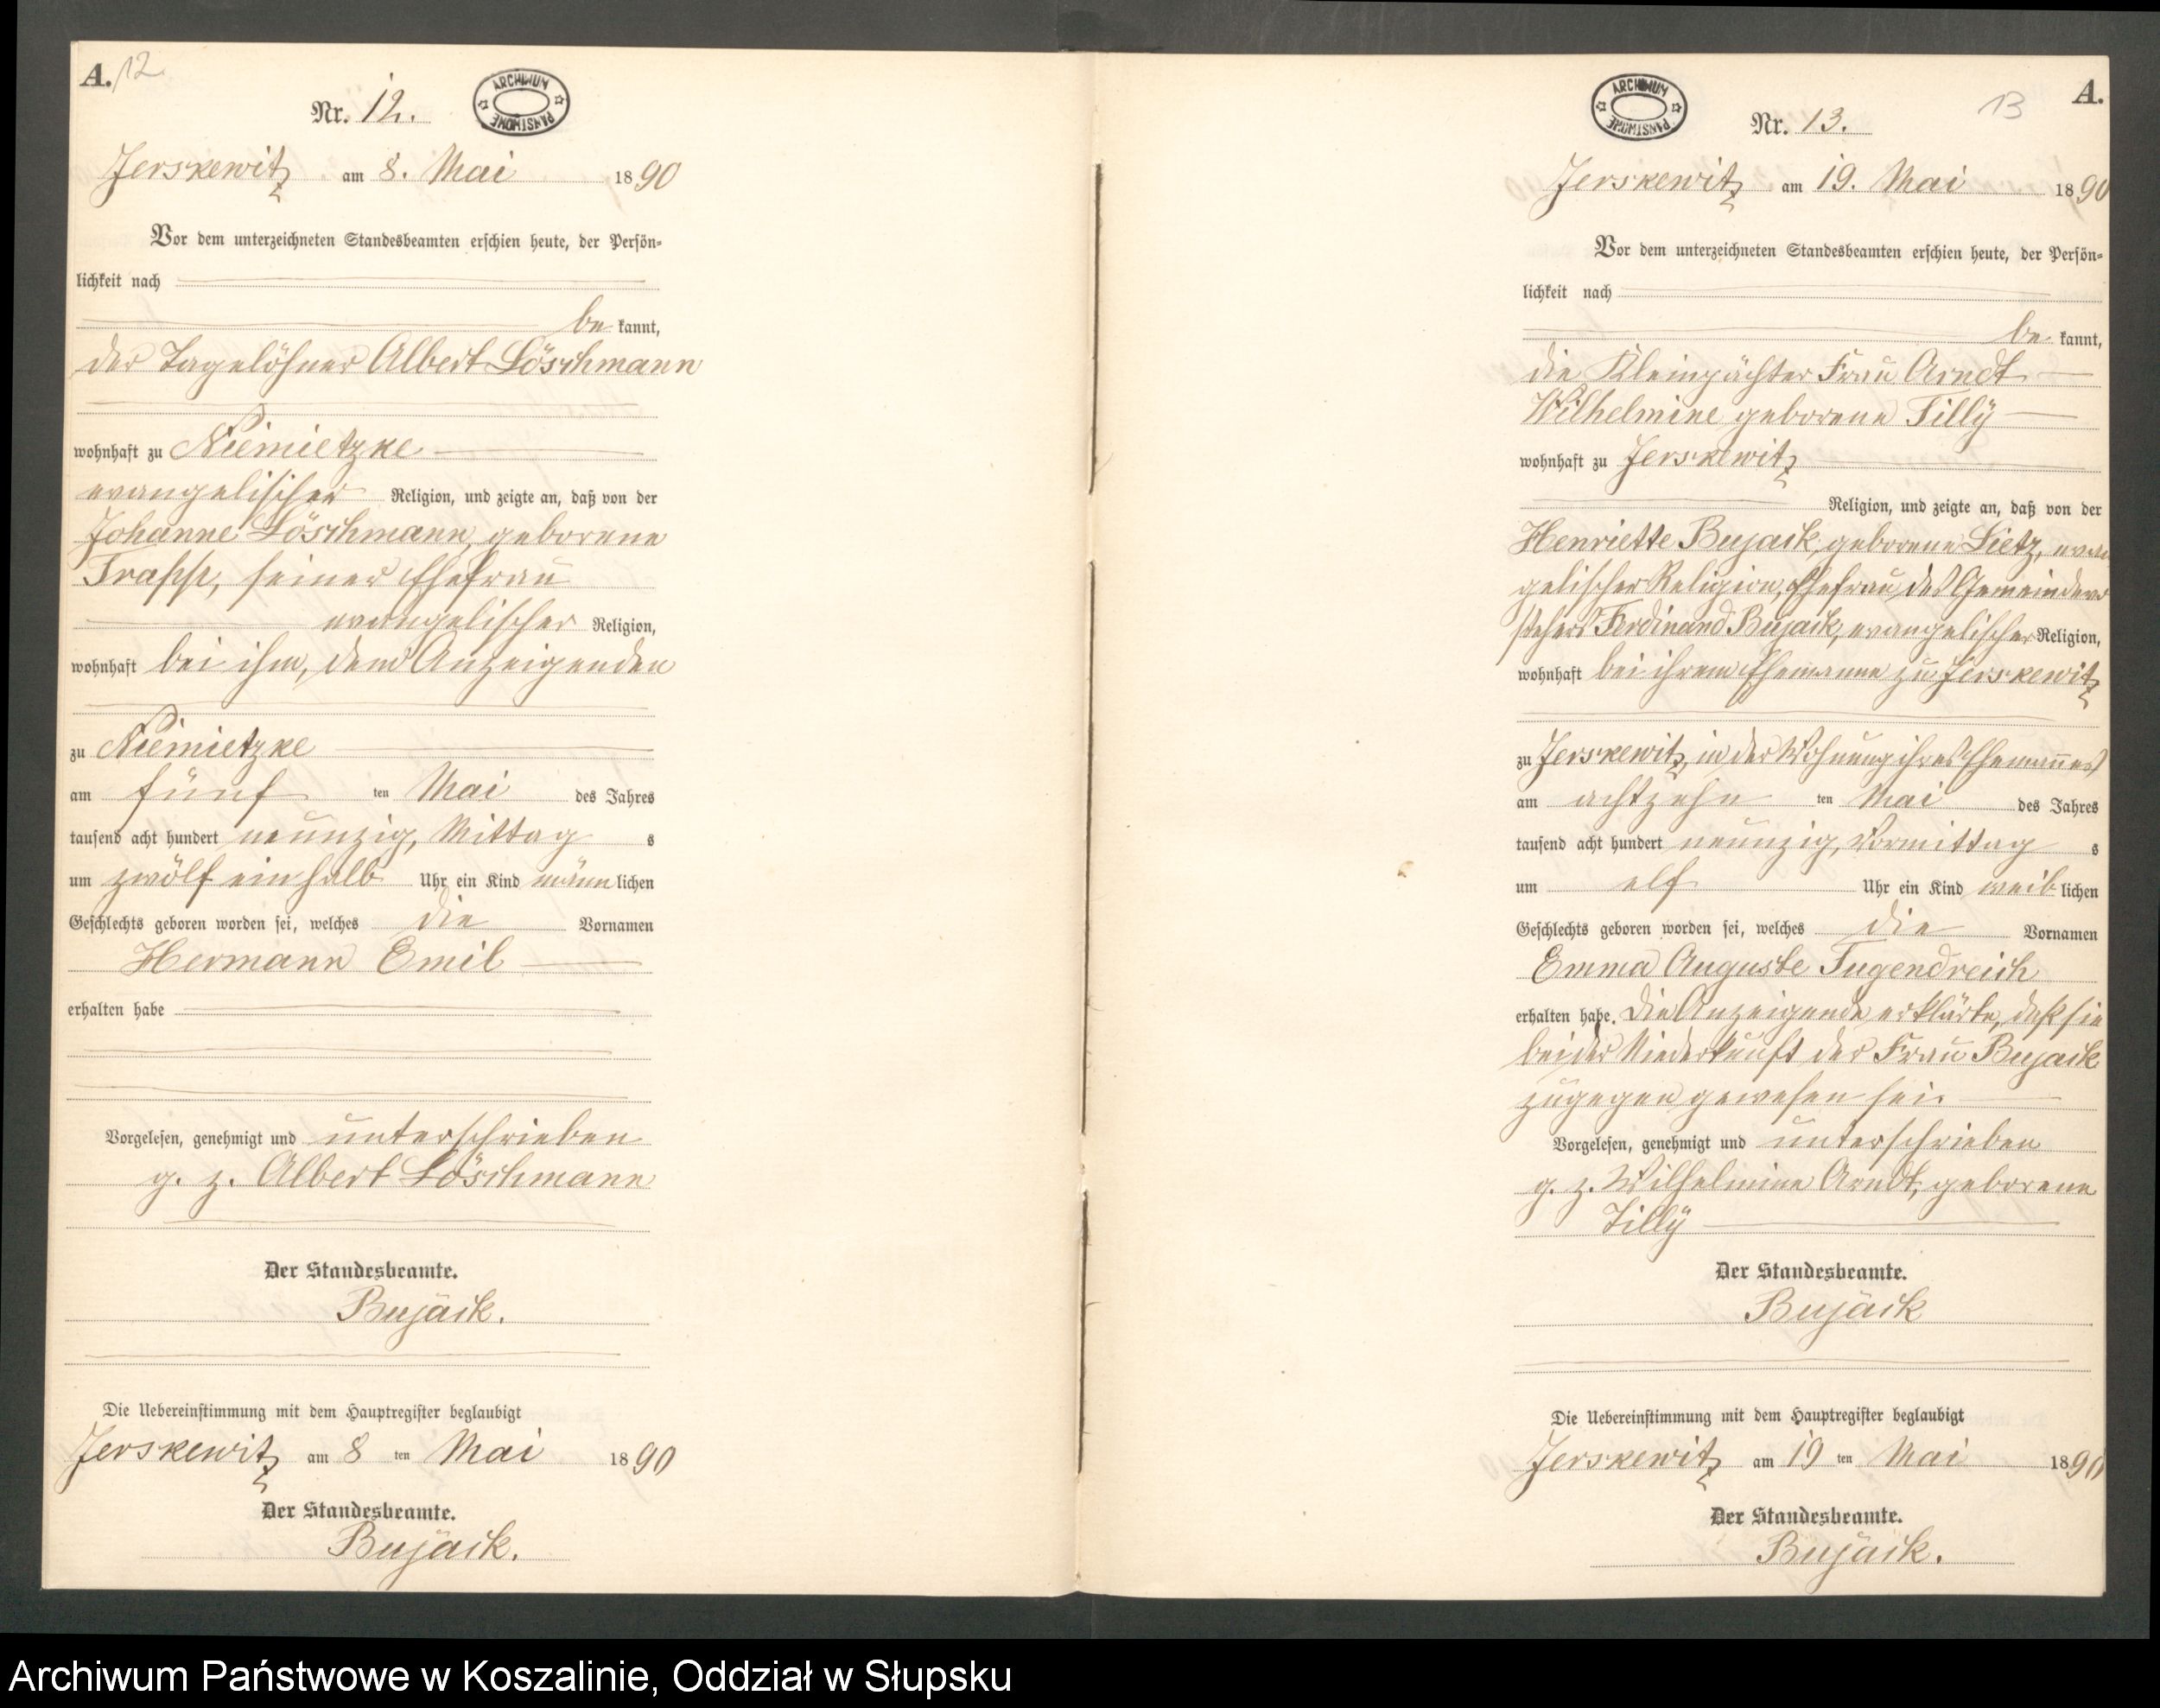 A. 12
Nr. 12.
ARCHIWUM PAŃSTWOWE
Jerskewitz am 8. Mai 1890
Vor dem unterzeichneten Standesbeamten erschien heute, der Persön-
lichkeit nach
be kannt,
der Tagelöhner Albert Löschmann
wohnhaft zu Niemietzke
evangelischer Religion, und zeigte an, daß von der
Johanne Löschmann, geborene
Trapp, seiner Ehefrau
evangelischer Religion,
wohnhaft bei ihm, dem Anzeigenden
zu Niemietzke
am fünf ten Mai des Jahres
tausend acht hundert neunzig, Mittag s
um zwölf einhalb Uhr ein Kind männlichen
Geschlechts geboren worden sei, welches die Vornamen
Hermann Emil
erhalten habe
Vorgelesen, genehmigt und unterschrieben
g. z. Albert Löschmann
Der Standesbeamte.
Bujack.
Die Uebereinstimmung mit dem Hauptregister beglaubigt
Jerskewitz am 8 ten Mai 1890
Der Standesbeamte.
Bujack.
13 A.
ARCHIWUM PAŃSTWOWE
Nr. 13.
Jerskewitz am 19. Mai 1890
Vor dem unterzeichneten Standesbeamten erschien heute, der Persön-
lichkeit nach
be kannt,
die Kleinpächter Frau Arndt
Wilhelmine geborene Tillÿ
wohnhaft zu Jerskewitz
Religion, und zeigte an, daß von der
Henriette Bujack, geborene Lietz, evan
gelischer Religion, Ehefrau des Gemeindevor
stehers Ferdinand Bujack, evangelischer Religion,
wohnhaft bei ihrem Ehemanne zu Jerskewitz
zu Jerskewitz, in der Wohnung ihres Ehemannes
am achtzehn ten Mai des Jahres
tausend acht hundert neunzig, Vormittag s
um elf Uhr ein Kind weiblichen
Geschlechts geboren worden sei, welches die Vornamen
Emma Auguste Tugendreich
erhalten habe. Die Anzeigende erklärte, daß sie
bei der Niederkunft der Frau Bujack
zugegen gewesen sei.
Vorgelesen, genehmigt und unterschrieben
g. z. Wilhelmine Arndt, geborene
Tillÿ
Der Standesbeamte.
Bujack
Die Uebereinstimmung mit dem Hauptregister beglaubigt
Jerskewitz am 19 ten Mai 1890
Der Standesbeamte.
Bujack.
Archiwum Państwowe w Koszalinie, Oddział w Słupsku